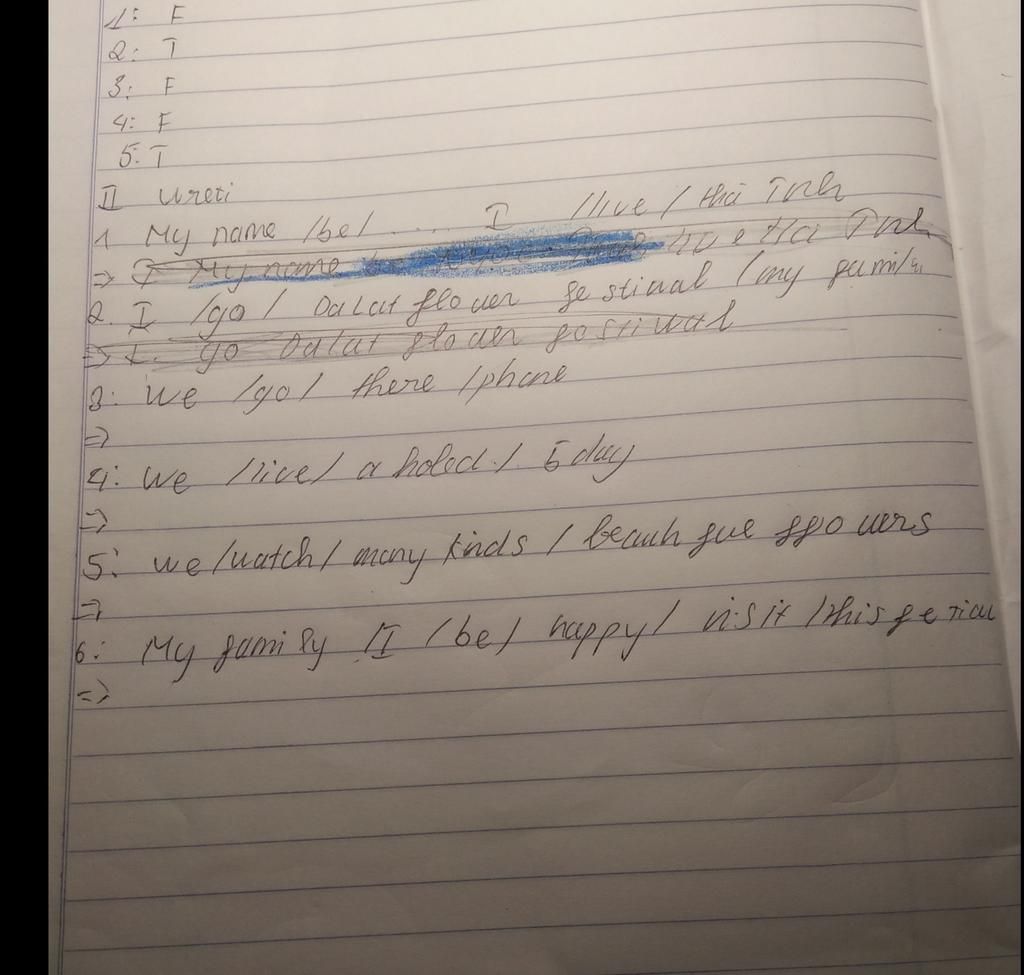 1: F
2: T
3: F
4: F
5: T
II Ureti
1 My name /be/ ..... I /live / Hà Tĩnh
=> I My name live Hà Tĩnh
2. I /go/ Dalat flower festiual / my family
=> I. go Dalat flower fostiwal
3: We /go/ there /phane
=>
4: We /live/ a holed / 5 day
=>
5: We /watch/ many kinds / flowers
=>
6: My family /I /be/ happy/ visit /this
=>